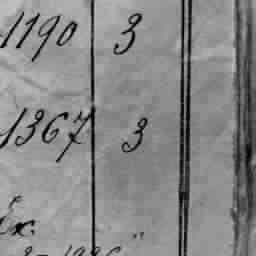 1190 3
1367 3
Ex.